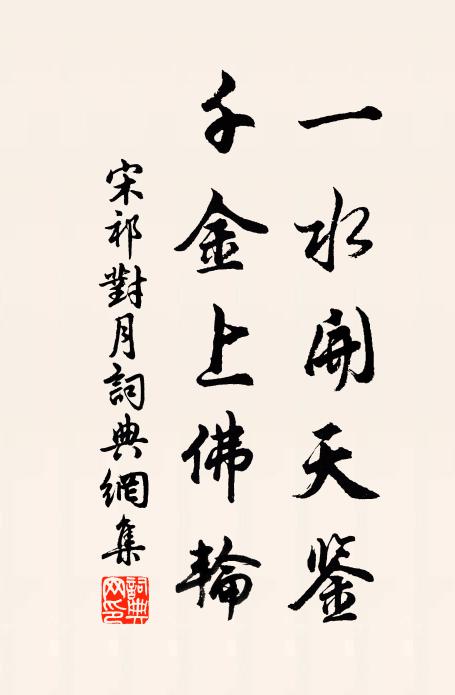 一水開天鉴
千金上佛輪
宋祁對月詞典網集
詞典網印